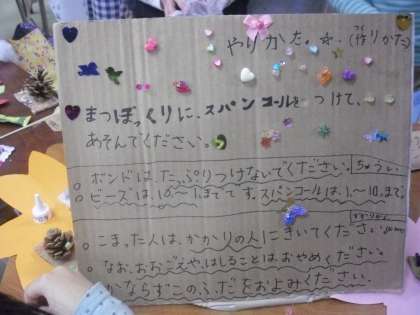 やりかた。☆・(作りかた)
まつぼっくりに、スパンコールをつけて、
あそんでください。
ボンドは、たっぷりつけないでください。
ちゅうい
ビーズは、まで です。スパンコールは、1、〜10、まで。
こまった人は、かかりの人にきいてください。
なお、おおごえや、はしることは、おやめください。
かならずこのふだをおよみください。